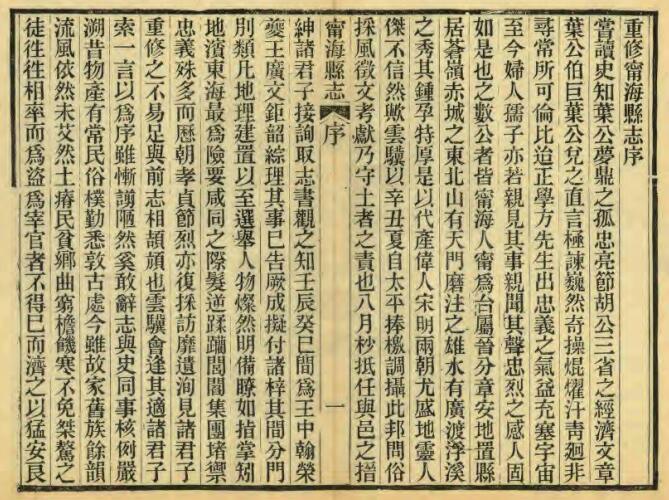 重修甯海縣志序
嘗讀史知葉公夢鼎之孤忠亮節胡公三省之經濟文章
葉公伯巨葉公兌之直言極諫巍然奇操焜燿汗青迥非
尋常所可倫比迨正學方先生出忠義之氣益充塞宇宙
至今婦人孺子亦若親見其事親聞其聲忠烈之感人固
如是也之數公者皆甯海人甯爲台屬晉分章安地置縣
居蒼嶺赤城之東北山有天門磨注之雄水有廣渡浮溪
之秀其鍾孕特厚是以代產偉人宋明兩朝尤盛地靈人
傑不信然歟雲驤以辛丑夏自太平捧檄調攝此邦問俗
採風徵文考獻乃守土者之責也八月杪抵任與邑之搢
甯海縣志 序 一
紳諸君子接詢取志書觀之知壬辰癸巳間爲王中翰榮
夔王廣文鉅韶綜理其事已告厥成擬付諸梓其間分門
別類凡地理建置以至選舉人物燦然明備瞭如指掌矧
地濱東海最爲險要咸同之際髮逆蹂躪閭閻集團堵禦
忠義殊多而歷朝孝貞節烈亦復採訪靡遺洵見諸君子
重修之不易足與前志相頡頏也雲驤會逢其適諸君子
索一言以爲序雖慚謭陋然奚敢辭志與史同事核例嚴
溯昔物產有常民俗樸勤悉敦古處今雖故家舊族餘韻
流風依然未艾然土瘠民貧鄉曲窮檐饑寒不免桀驁之
徒往往相率而爲盜爲宰官者不得已而濟之以猛安良